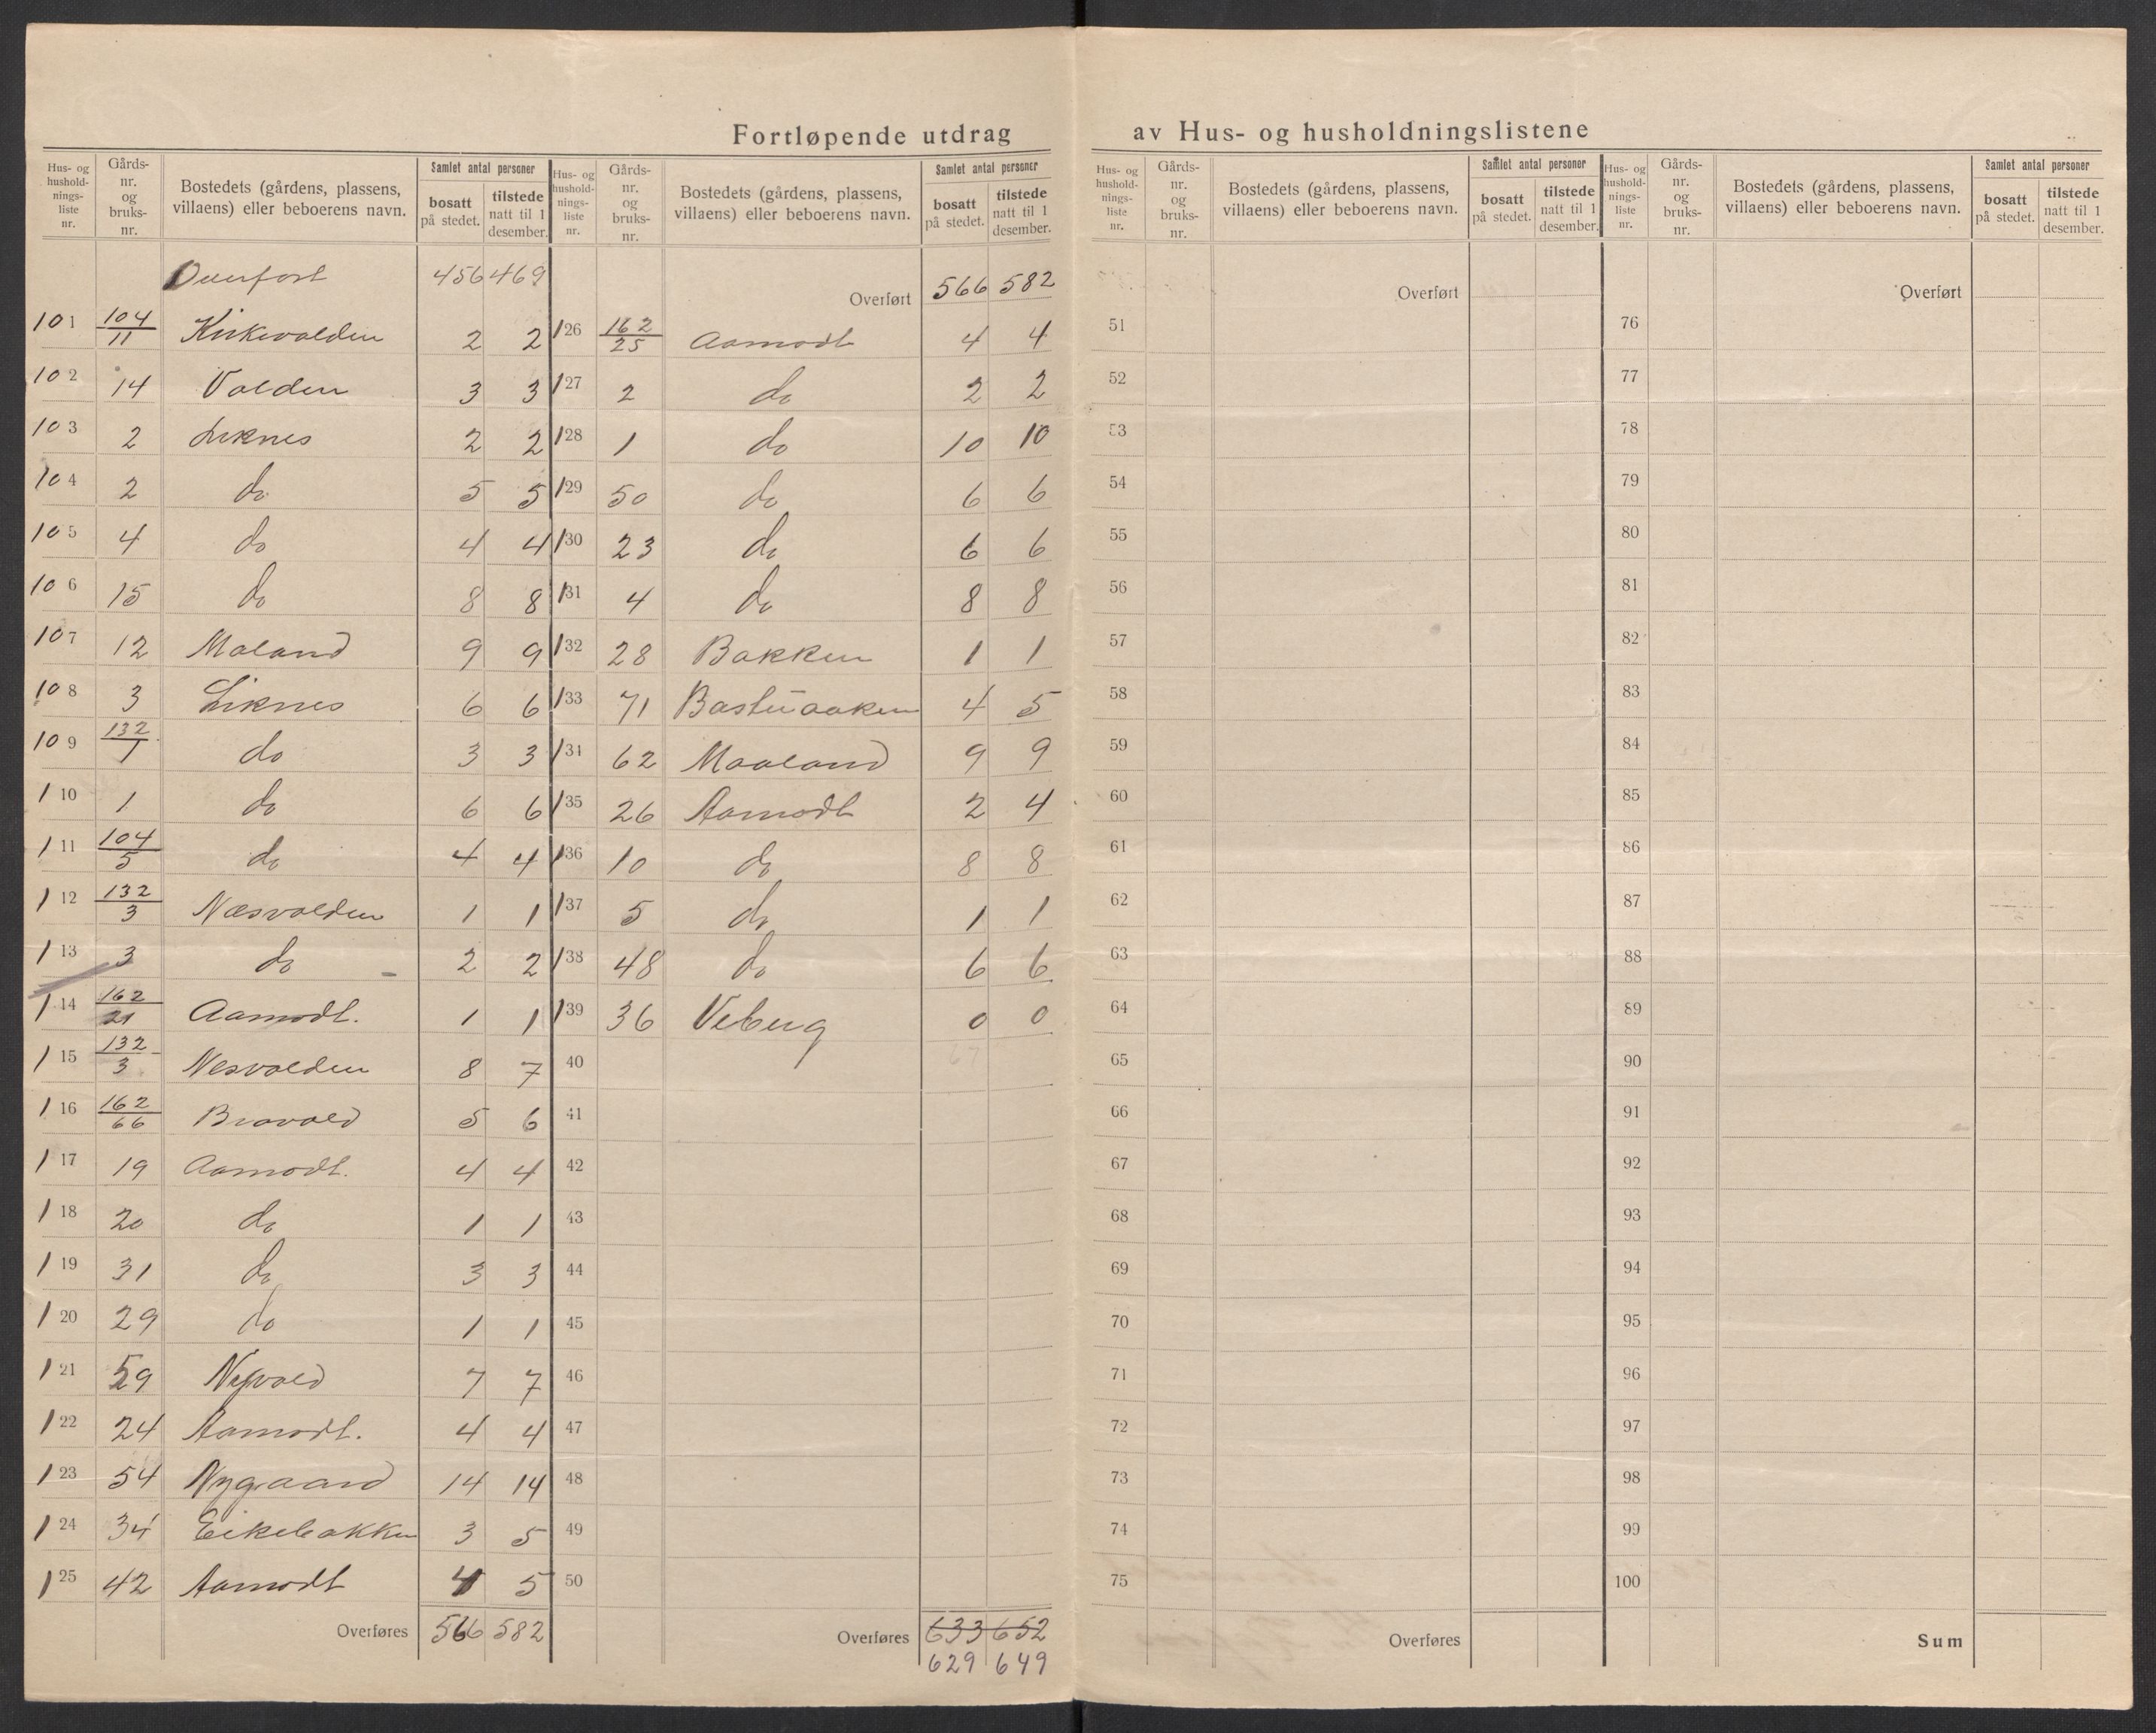 Fortløpende utdrag av Hus- og husholdningslistene
Hus- og hushold-nings-liste nr. | Gårds-nr. og bruks-nr. | Bostedets (gårdens, plassens, villaens) eller beboerens navn. | Samlet antal personer | bosatt på stedet. | tilstede natt til 1 desember.
Overført 456 469
101 104/11 Kirkevolden 2 2
102 14 Volden 3 3
103 2 Liknes 2 2
104 2 do 5 5
105 4 do 4 4
106 15 do 8 8
107 12 Moland 9 9
108 3 Liknes 6 6
109 132/1 do 3 3
110 1 do 6 6
111 104/5 do 4 4
112 132/3 Næsvolden 1 1
113 3 do - 2 2
114 162/21 Aamodt. 1 1
115 132/3 Nesvolden 8 7
116 162/66 Brovold 5 6
117 19 Aamodt. 4 4
118 20 do 1 1
119 31 do 3 3
120 29 do 1 1
121 59 Nyvold 7 7
122 24 Aamodt. 4 4
123 54 Nygaard 14 14
124 34 Eikebakken 3 5
125 42 Aamodt 4 5
Overføres 566 582
Hus- og hushold-nings-liste nr. | Gårds-nr. og bruks-nr. | Bostedets (gårdens, plassens, villaens) eller beboerens navn. | Samlet antal personer | bosatt på stedet. | tilstede natt til 1 desember.
Overført 566 582
126 162/25 Aamodt 4 4
127 2 do 2 2
128 1 do 10 10
129 50 do 6 6
130 23 do 6 6
131 4 do 8 8
132 28 Bakken 1 1
133 71 4 5
134 62 Maaland 9 9
135 26 Aamodt 2 4
136 10 do 8 8
137 5 do 1 1
138 48 do 6 6
139 36 Veberg 0 0
40
41
42
43
44
45
46
47
48
49
50
Overføres 633 652
629 649
Hus- og hushold-nings-liste nr. | Gårds-nr. og bruks-nr. | Bostedets (gårdens, plassens, villaens) eller beboerens navn. | Samlet antal personer | bosatt på stedet. | tilstede natt til 1 desember.
Overført
51
52
53
54
55
56
57
58
59
60
61
62
63
64
65
66
67
68
69
70
71
72
73
74
75
Overføres
Hus- og hushold-nings-liste nr. | Gårds-nr. og bruks-nr. | Bostedets (gårdens, plassens, villaens) eller beboerens navn. | Samlet antal personer | bosatt på stedet. | tilstede natt til 1 desember.
Overført
76
77
78
79
80
81
82
83
84
85
86
87
88
89
90
91
92
93
94
95
96
97
98
99
100
Sum